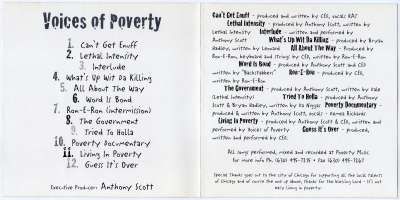 Voices of Poverty
1. Can't Get Enuff
2. Lethal Intensity
3. Interlude
4. What's Up Wit Da Killing
5. All About The Way
6. Word Is Bond
7. Ron-E-Ron (intermission)
8. The Government
9. Tried To Holla
10. Poverty Documentary
11. Living In Poverty
12. Guess It's Over
Executive Producer: Anthony Scott
Can't Get Enuff - produced and written by CEO, vocals: RAS
Lethal Intensity - produced by Anthony Scott, written by
Lethal Intensity Interlude - written and performed by
Anthony Scott What's Up Wit Da Killing - produced by Bryan
Hadley, written by Leonard All About The Way - Produced by
Ron-E-Ron, keyboard and strings by CEO, written by Ron-E-Ron
Word Is Bond - produced by Anthony Scott and CEO
written by "Backstabbers" Ron-E-Ron - produced by CEO,
written by Ron-E-Ron
The Government - produced by Anthony Scott, written by
(Lethal Intensity) Tried To Holla - produced by Anthony
Scott & Bryan Hadley, written by Poverty Documentary -
produced & written by Anthony Scott, vocals -
Living In Poverty - produced by Anthony Scott & CEO, written and
performed by Voices of Poverty Guess It's Over - produced,
written and performed by CEO.
All songs performed, mixed and recorded at Poverty Music
for more info Ph. (630) Fax (630)
Special thanks goes out to the city of Chicago for supporting all the local talents
of Chicago and of course the out of above, thanks for the blessing Lord - It's not
easy living in poverty.